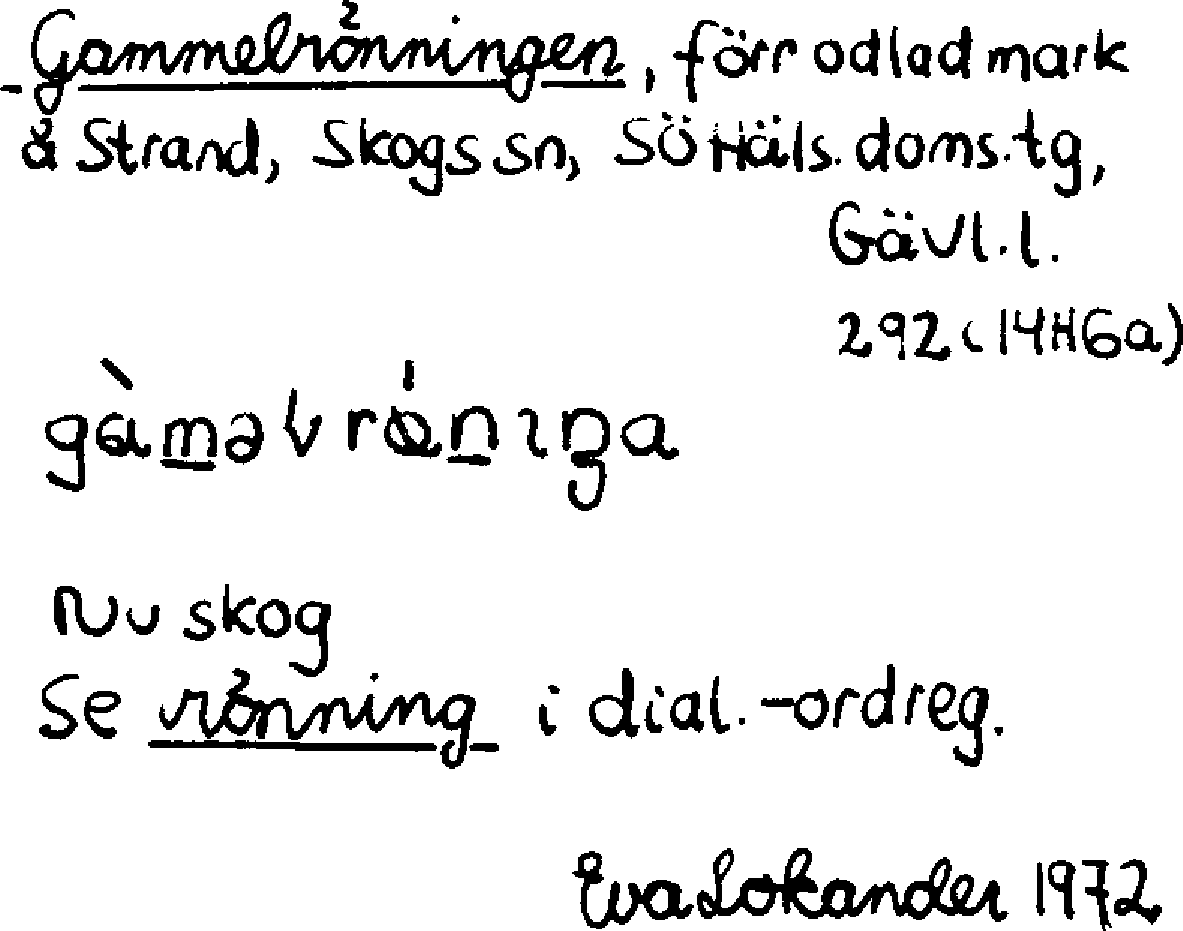 Gammelrönningen, förr odlad mark
å Strand, Skogs sn, Sö Häls. doms. tg,
Gävl. l.
292 (14H6a)
Nu skog
Se rönning i dial.-ordreg.
Eva Lokander 1972